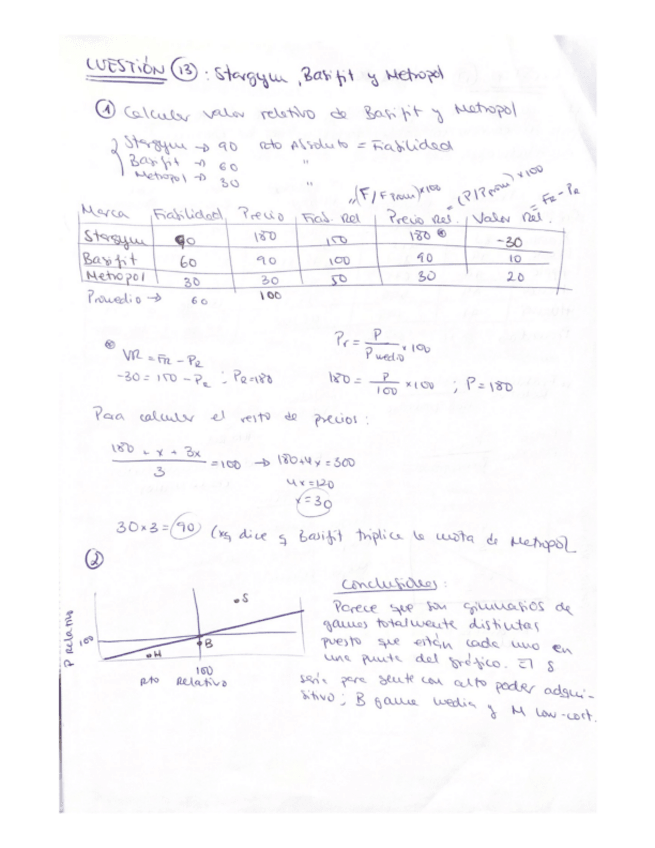 CUESTIÓN 13: Stargym, Basifit y Metropol
① Calcular valor relativo de Basifit y Metropol
Stargym → 90 Rto Absoluto = Fiabilidad
Basifit → 60 "
Metropol → 30 "
(F/F prom)x100 = (P/Pprom)x100 = FR - PR
Marca Fiabilidad Precio Fiab. Rel Precio Rel. Valor Rel.
Stargym 90 180 150 180 -30
Basifit 60 90 100 90 10
Metropol 30 30 50 30 20
Promedio → 60 100
VR = FR - PR
-30 = 150 - PR ; PR=180
Pr = P / P medio x 100
180 = P / 100 x 100 ; P = 180
Para calcular el resto de precios:
180 + x + 3x / 3 = 100 → 180+4x = 300
4x = 120
x = 30
30 x 3 = 90 (xq dice q Basifit triplica la cuota de Metropol
②
P Relativo
100
S
B
M
100
Rto Relativo
Conclusiones:
Parece que son gimnasios de
gamas totalmente distintas
puesto que están cada uno en
una punta del gráfico. El S
sería para gente con alto poder adqui-
sitivo; B gama media y M low-cost.